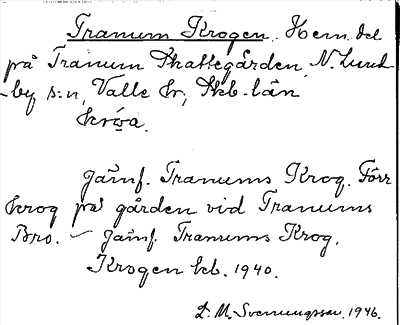 Tranum Krogen. Hem. del
på Tranum Skattegården, N. Lund-
by s:n, Valle hr; Skb. län
krωa.
Jämf. Tranums Krog. Förr
krog på gården vid Tranums
Bro. – Jämf. Tranums Krog.
Krogen kb. 1940.
D. M. Svenungsson. 1946.